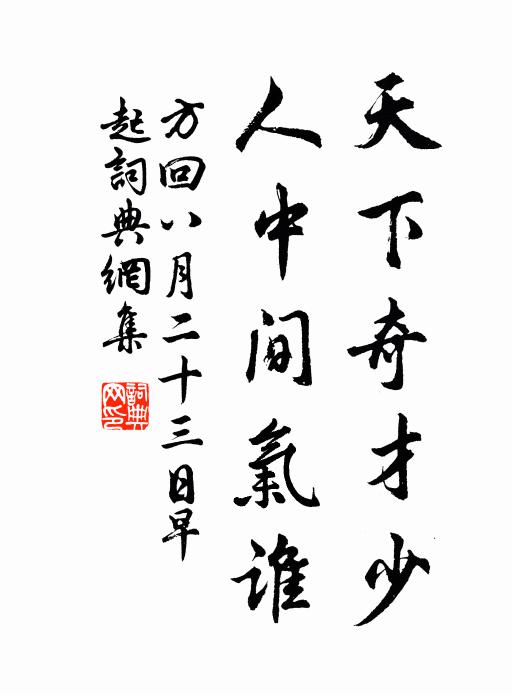 天下奇才少
人中间氣谁
方回八月二十三日早
起詞典網集
詞典
网印